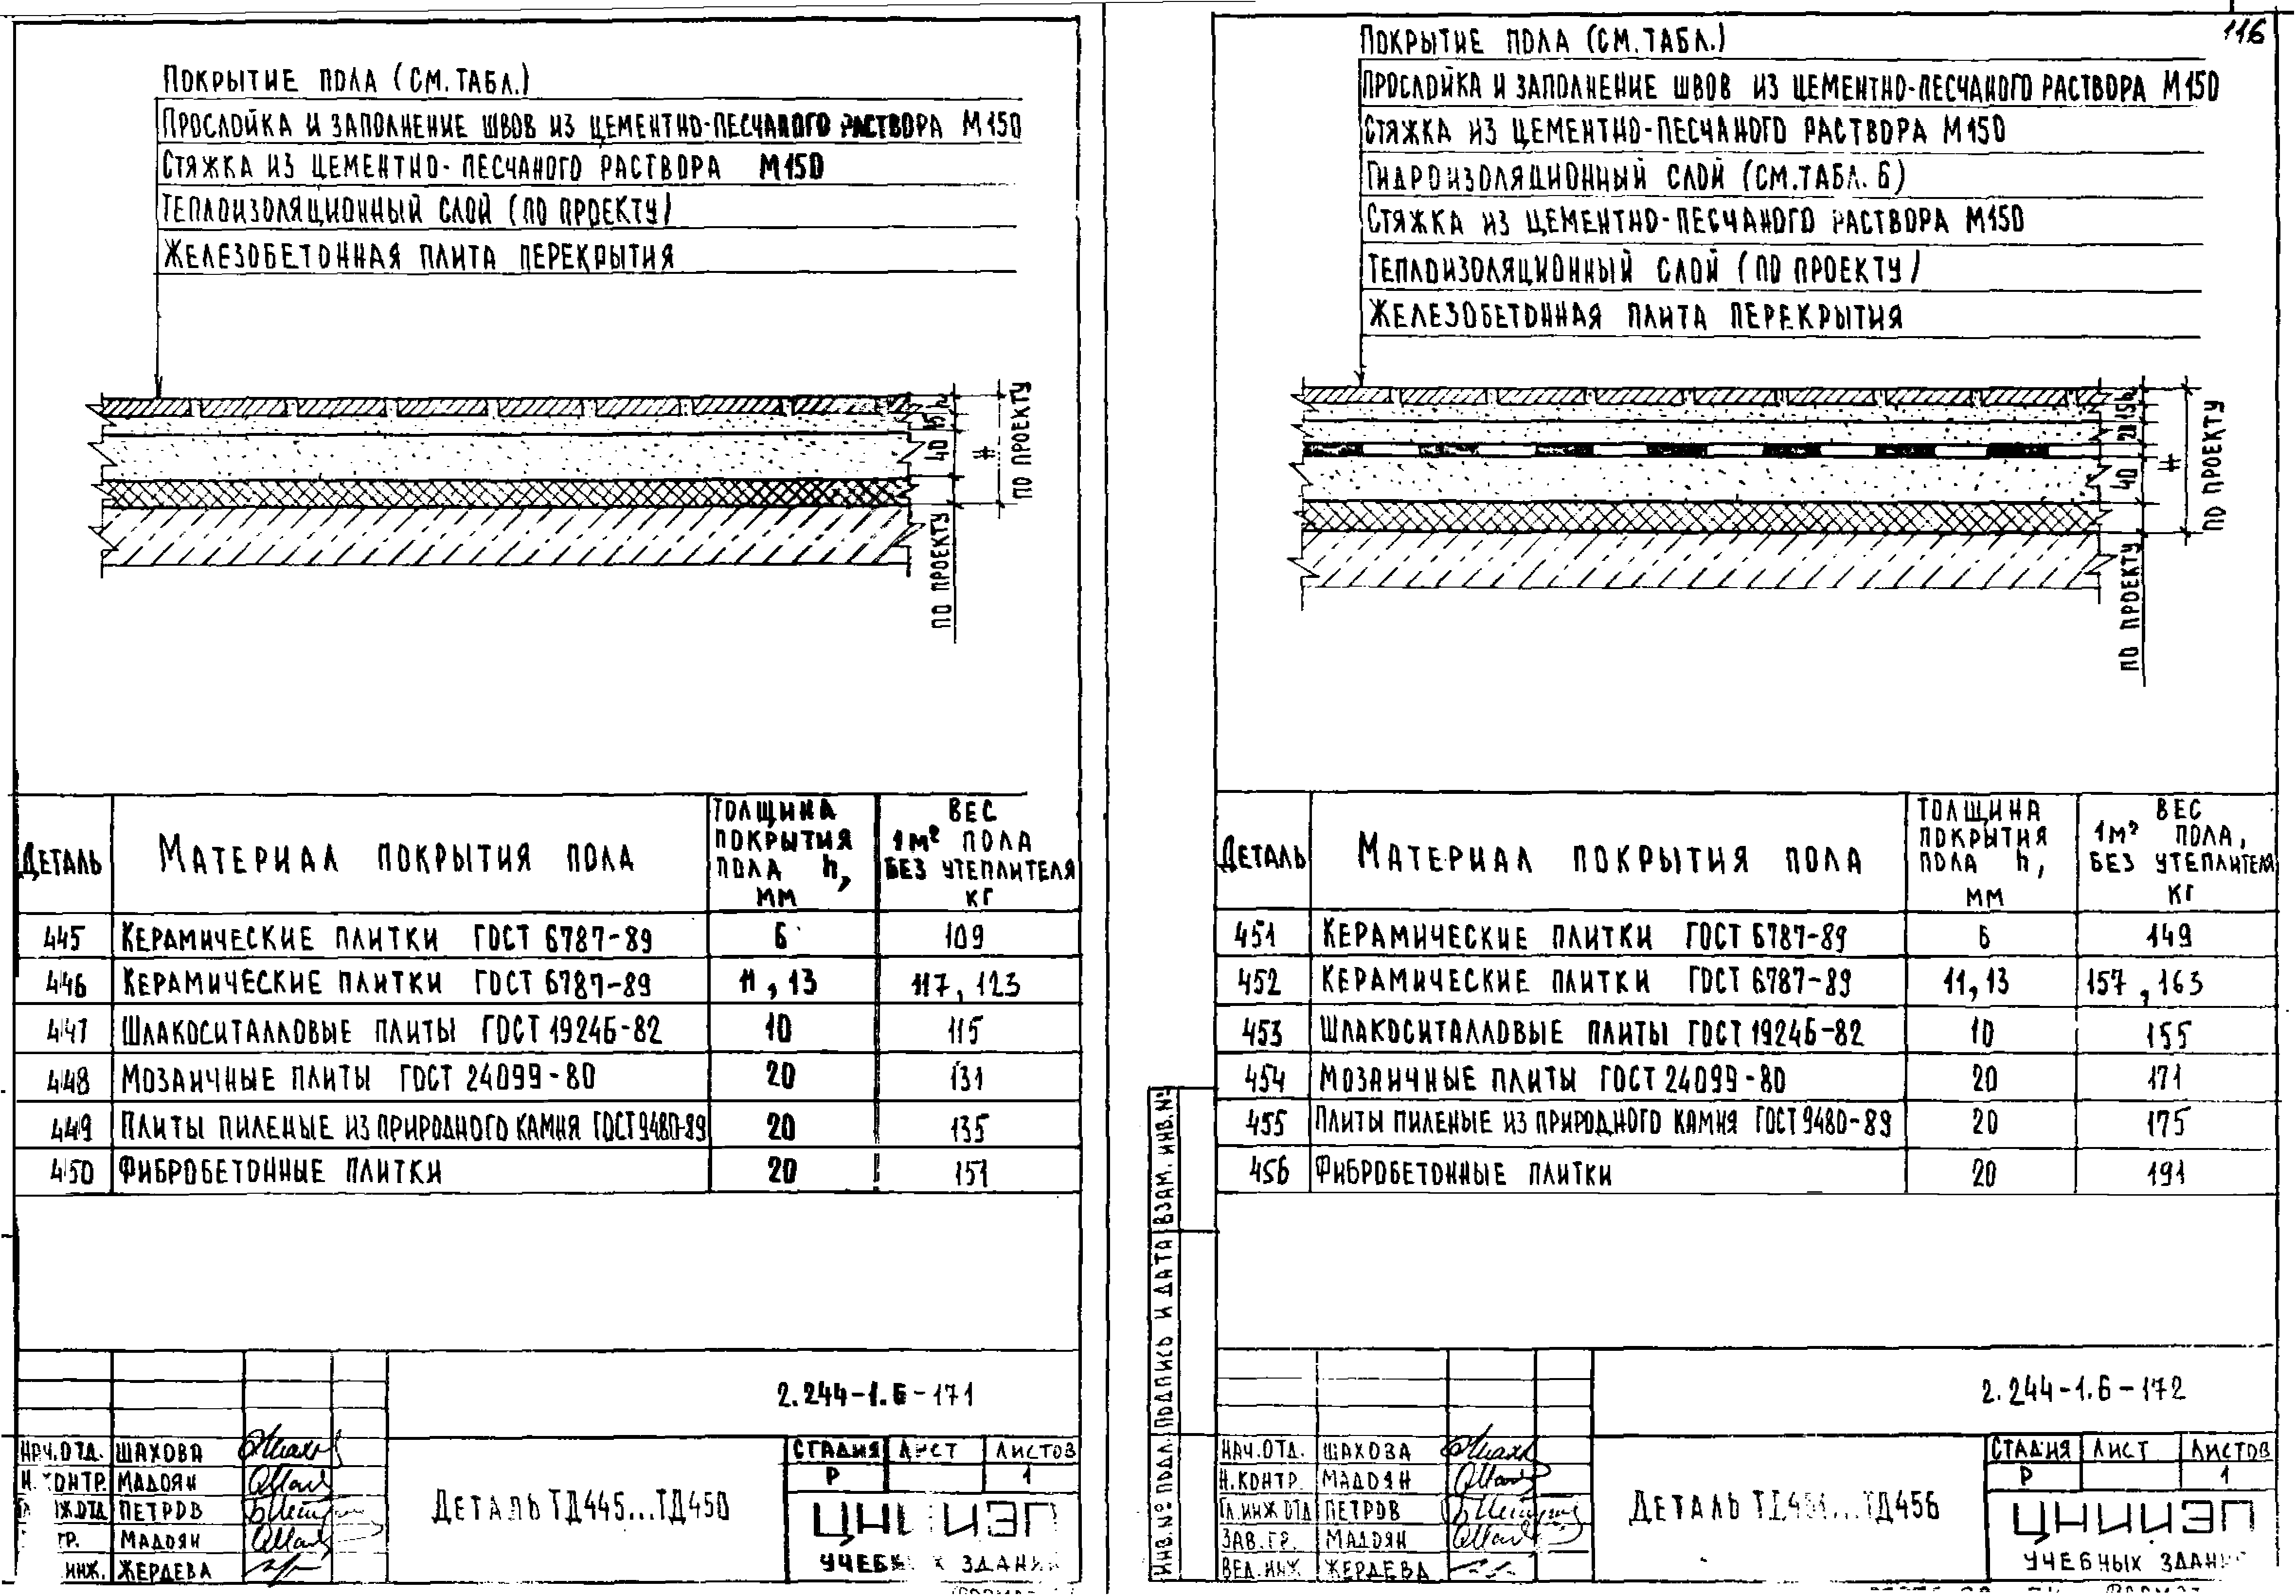 116
ПОКРЫТИЕ ПОЛА (СМ. ТАБЛ.)
ПРОСЛОЙКА И ЗАПОЛНЕНИЕ ШВОВ ИЗ ЦЕМЕНТНО-ПЕСЧАНОГО РАСТВОРА М150
СТЯЖКА ИЗ ЦЕМЕНТНО-ПЕСЧАНОГО РАСТВОРА М150
ТЕПЛОИЗОЛЯЦИОННЫЙ СЛОЙ (ПО ПРОЕКТУ)
ЖЕЛЕЗОБЕТОННАЯ ПЛИТА ПЕРЕКРЫТИЯ
h
15
40
ПО ПРОЕКТУ
ПО ПРОЕКТУ
ДЕТАЛЬ МАТЕРИАЛ ПОКРЫТИЯ ПОЛА ТОЛЩИНА ПОКРЫТИЯ ПОЛА h, ММ ВЕС 1М² ПОЛА БЕЗ УТЕПЛИТЕЛЯ КГ
445 КЕРАМИЧЕСКИЕ ПЛИТКИ ГОСТ 6787-89 6 109
446 КЕРАМИЧЕСКИЕ ПЛИТКИ ГОСТ 6787-89 11, 13 117, 123
447 ШЛАКОСИТАЛЛОВЫЕ ПЛИТЫ ГОСТ 19246-82 10 115
448 МОЗАИЧНЫЕ ПЛИТЫ ГОСТ 24099-80 20 131
449 ПЛИТЫ ПИЛЕНЫЕ ИЗ ПРИРОДНОГО КАМНЯ ГОСТ 9480-89 20 135
450 ФИБРОБЕТОННЫЕ ПЛИТКИ 20 151
2.244-1.6-171
НАЧ.ОТД. ШАХОВА
Н.КОНТР. МАДОЯН
ПЕТРОВ
ГР. МАДОЯН
ИНЖ. ЖЕРДЕВА
ДЕТАЛЬ ТД445...ТД450
СТАДИЯ ЛИСТ ЛИСТОВ
Р 1
ЦНИИЭП
УЧЕБНЫХ ЗДАНИЙ
ПОКРЫТИЕ ПОЛА (СМ. ТАБЛ.)
ПРОСЛОЙКА И ЗАПОЛНЕНИЕ ШВОВ ИЗ ЦЕМЕНТНО-ПЕСЧАНОГО РАСТВОРА М150
СТЯЖКА ИЗ ЦЕМЕНТНО-ПЕСЧАНОГО РАСТВОРА М150
ГИДРОИЗОЛЯЦИОННЫЙ СЛОЙ (СМ. ТАБЛ. 6)
СТЯЖКА ИЗ ЦЕМЕНТНО-ПЕСЧАНОГО РАСТВОРА М150
ТЕПЛОИЗОЛЯЦИОННЫЙ СЛОЙ (ПО ПРОЕКТУ)
ЖЕЛЕЗОБЕТОННАЯ ПЛИТА ПЕРЕКРЫТИЯ
h
15
20
40
ПО ПРОЕКТУ
ПО ПРОЕКТУ
ДЕТАЛЬ МАТЕРИАЛ ПОКРЫТИЯ ПОЛА ТОЛЩИНА ПОКРЫТИЯ ПОЛА h, ММ ВЕС 1М² ПОЛА, БЕЗ УТЕПЛИТЕЛЯ КГ
451 КЕРАМИЧЕСКИЕ ПЛИТКИ ГОСТ 6787-89 6 149
452 КЕРАМИЧЕСКИЕ ПЛИТКИ ГОСТ 6787-89 11, 13 157, 163
453 ШЛАКОСИТАЛЛОВЫЕ ПЛИТЫ ГОСТ 19246-82 10 155
454 МОЗАИЧНЫЕ ПЛИТЫ ГОСТ 24099-80 20 171
455 ПЛИТЫ ПИЛЕНЫЕ ИЗ ПРИРОДНОГО КАМНЯ ГОСТ 9480-89 20 175
456 ФИБРОБЕТОННЫЕ ПЛИТКИ 20 191
ИНВ.№ ПОДЛ. ПОДПИСЬ И ДАТА ВЗАМ. ИНВ.№
2.244-1.6-172
НАЧ.ОТД. ШАХОВА
Н.КОНТР. МАДОЯН
ГЛ.ИНЖ ОТД ПЕТРОВ
ЗАВ.ГР. МАДОЯН
ВЕД.ИНЖ ЖЕРДЕВА
ДЕТАЛЬ ТД451...ТД456
СТАДИЯ ЛИСТ ЛИСТОВ
Р 1
ЦНИИЭП
УЧЕБНЫХ ЗДАНИЙ